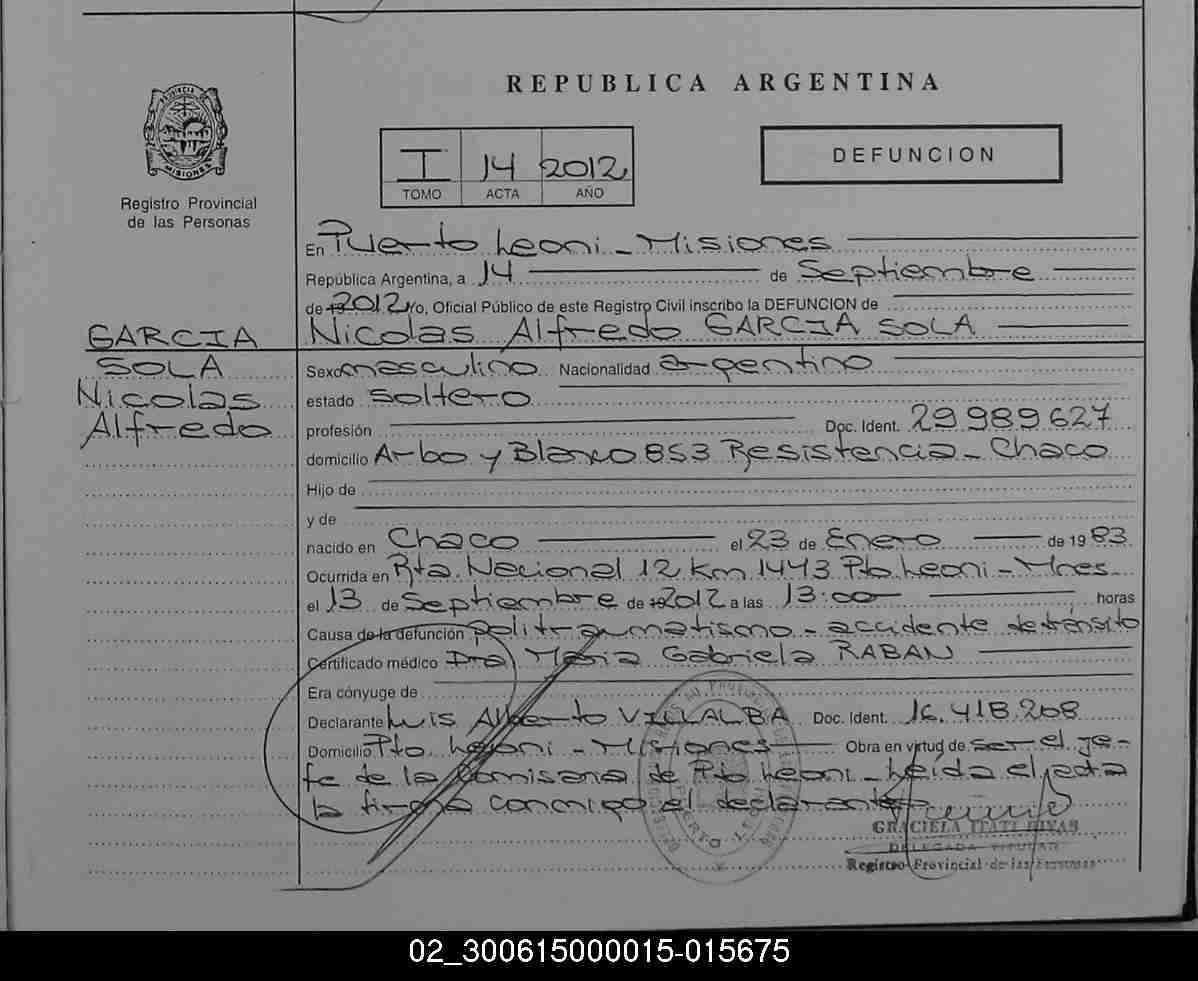 REPUBLICA ARGENTINA
PROVINCIA
MISIONES
Registro Provincial
de las Personas
I 14 2012
TOMO ACTA AÑO
DEFUNCION
En Puerto Leoni - Misiones
República Argentina, a 14 de Septiembre
de 19 2012 Yo, Oficial Público de este Registro Civil inscribo la DEFUNCION de
Nicolas Alfredo GARCIA SOLA
GARCIA
SOLA
Nicolas
Alfredo
Sexo masculino Nacionalidad argentino
estado soltero
profesión Doc. Ident. 29989627
domicilio Arbo y Blanco 853 Resistencia - Chaco
Hijo de
y de
nacido en Chaco el 23 de Enero de 19 83
Ocurrida en Rta. Nacional 12 Km 1443 Pto Leoni - Mnes
el 13 de Septiembre de 19 2012 a las 13:00 horas
Causa de la defunción politraumatismo - accidente de tránsito
Certificado médico Dra Maria Gabriela RABAN
Era cónyuge de
Declarante Luis Alberto VILLALBA Doc. Ident. 16.418.208
Domicilio Pto Leoni - Misiones Obra en virtud de ser el je-
fe de la Comisaria de Pto Leoni - Leída el acta
la firma conmigo el declarante
GRACIELA ITATI RIVAS
DELEGADA TITULAR
Registro Provincial de las Personas
PUERTO LEONI
02_300615000015-015675